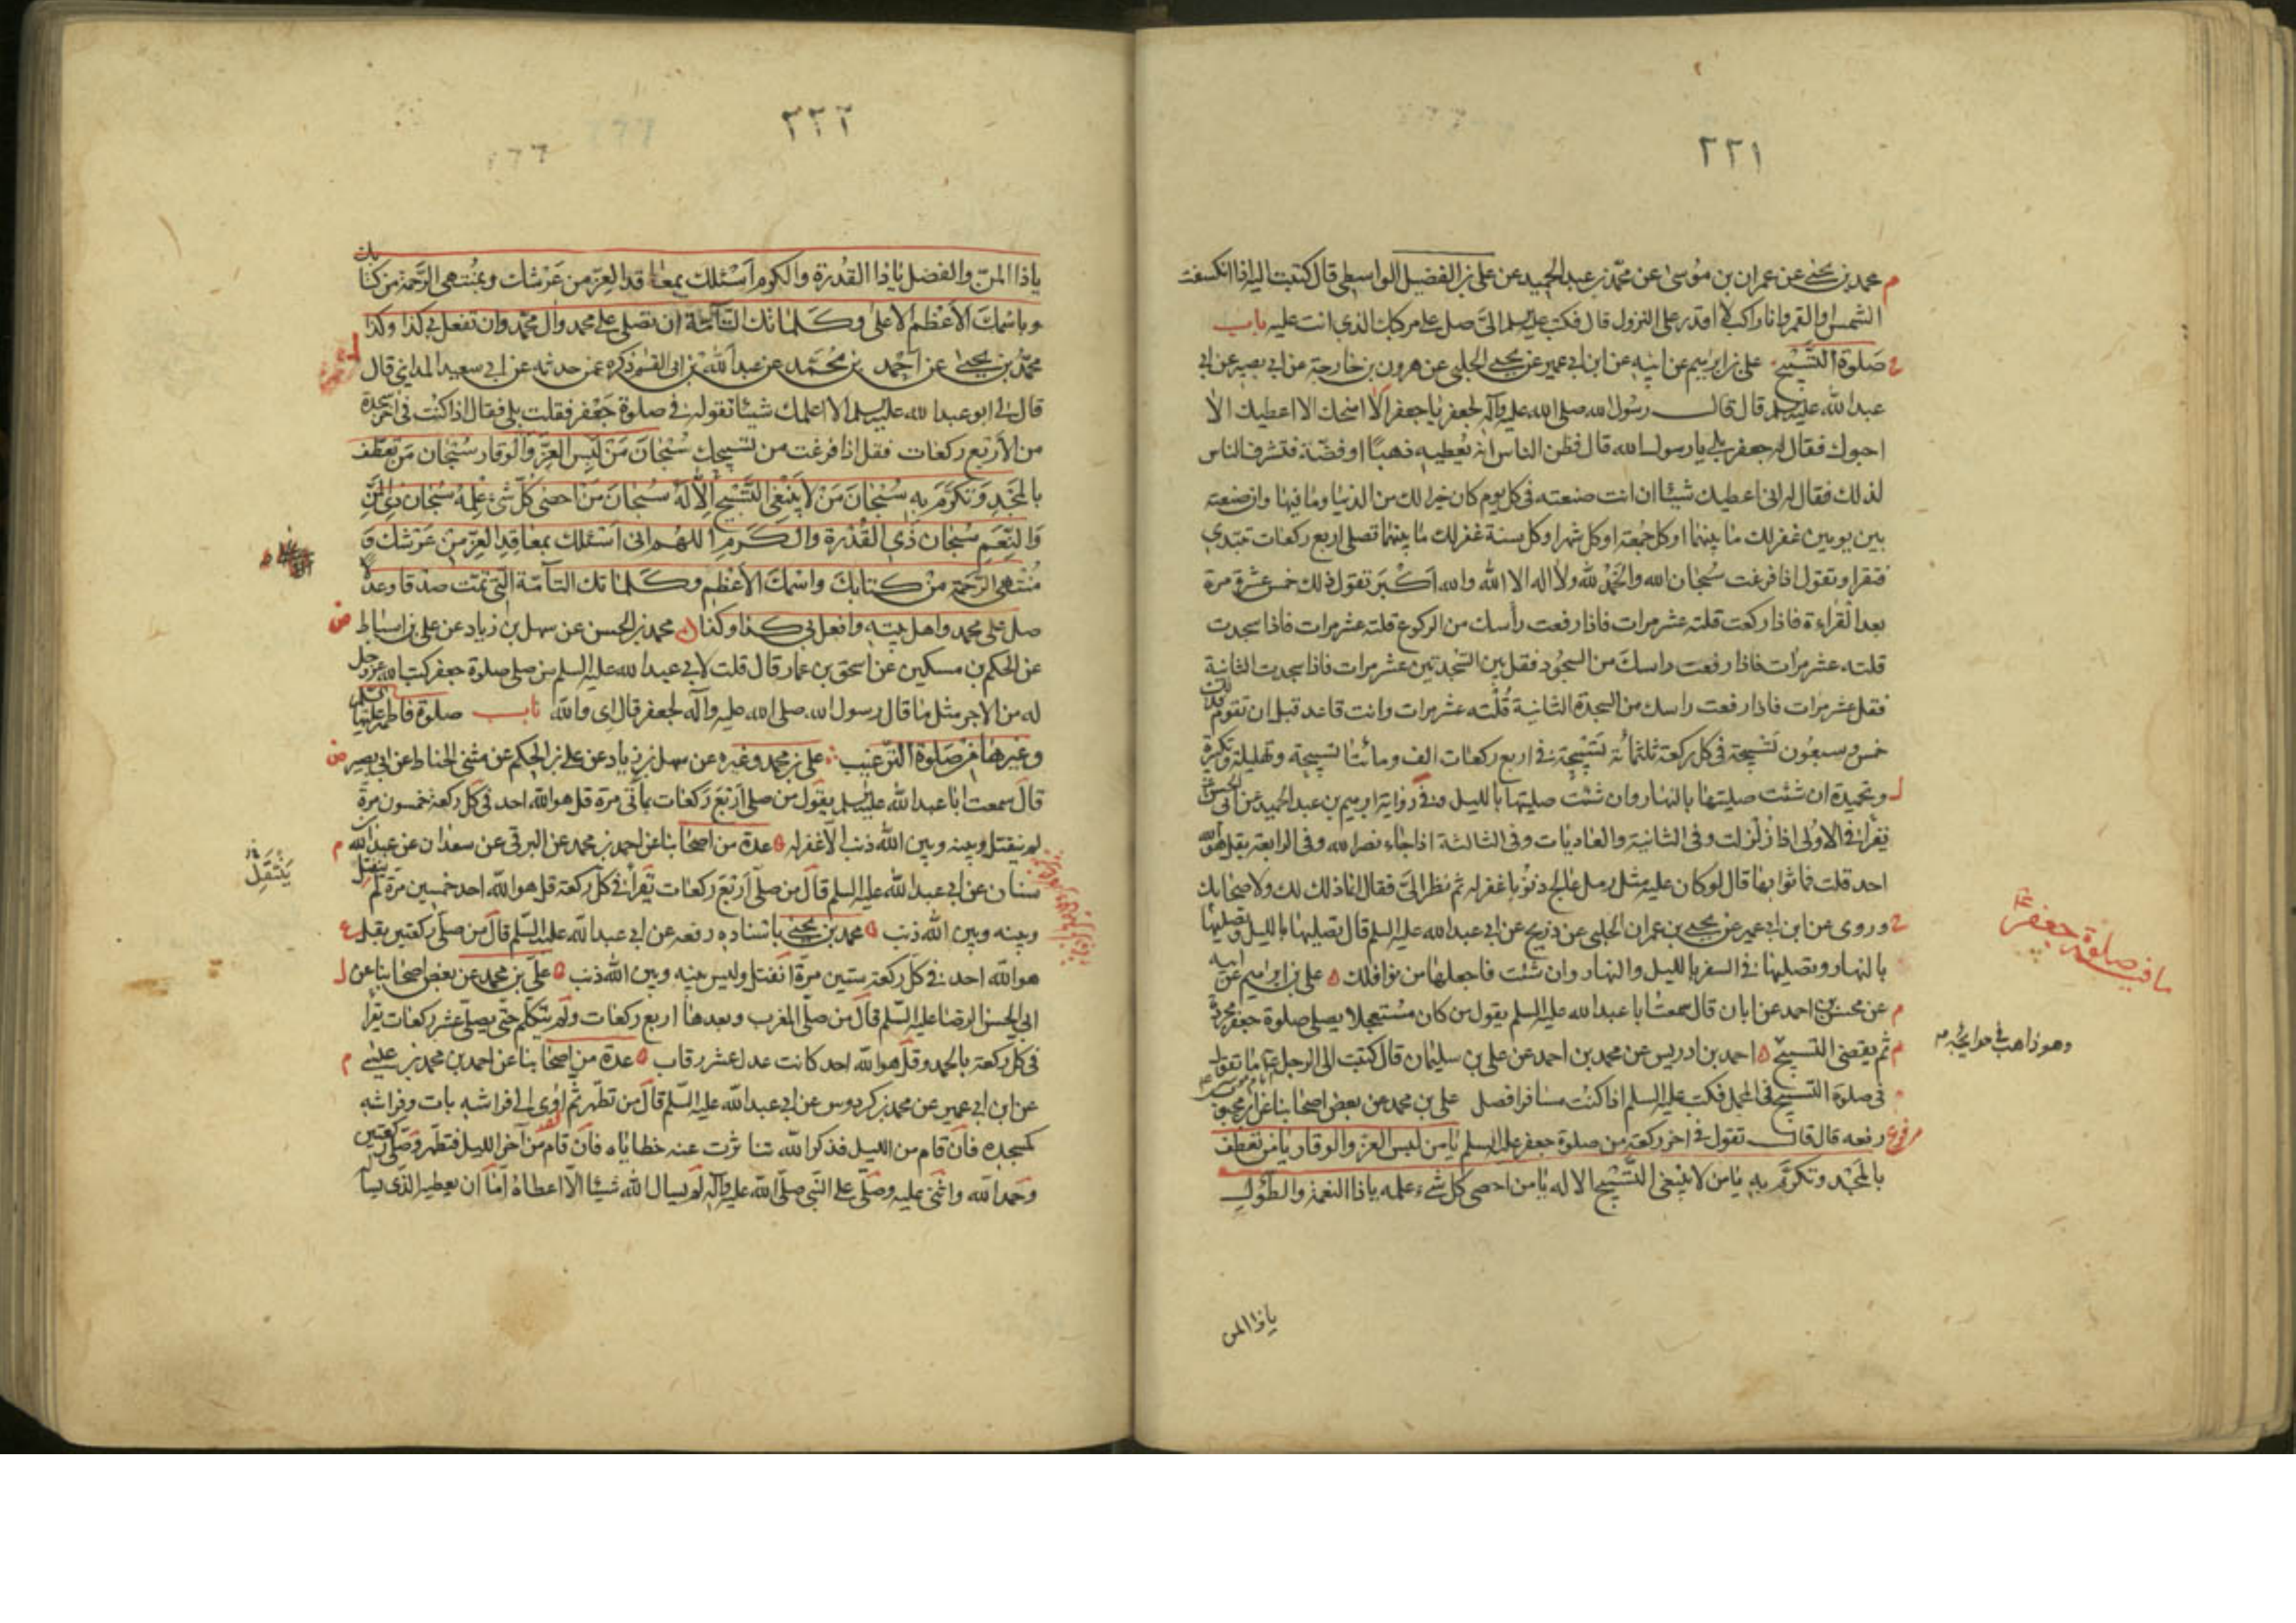 ٢٢١
محمد بن يحيى عن عمران بن موسى عن محمد بن عبد الحميد عن على بن الفضل الواسطى قال كتبت اليه اذا انكسفت
الشمس او القمر وانا راكب لا اقدر على النزول قال فكتب عليه السلم الىّ صل على مركبك الذى انت عليه باب
صلوة التسبيح على بن ابرهيم عن ابيه عن ابن ابى عمير عن يحيى الحلبى عن هرون بن خارجة عن ابى بصير عن ابى
عبد الله عليه السلم قال قال رسول الله صلى الله عليه وآله لجعفر يا جعفر الا امنحك الا اعطيك الا
احبوك فقال له جعفر بلى يا رسول الله قال فظن الناس انه يُعطيه ذهبًا او فضّة فتشرف الناس
لذلك فقال له انى اعطيك شيئًا ان انت صنعته فى كل يوم كان خيرا لك من الدنيا وما فيها وان صنعته
بين يومين غفر لك ما بينهما او كل جمعة او كل شهر او كل سنة غفر لك ما بينهما تصلى اربع ركعات تبتدى
فتقرا وتقول اذا فرغت سبحان الله والحمد لله ولا اله الا الله والله اكبر تقول ذلك خمس عشرة مرة
بعد القراءة فاذا ركعت قلته عشر مرات فاذا رفعت رأسك من الركوع قلته عشر مرات فاذا سجدت
قلته عشر مرات فاذا رفعت راسك من السجود فقل بين السجدتين عشر مرات فاذا سجدت الثانية
فقل عشر مرات فاذا رفعت راسك من السجدة الثانية قلته عشر مرات وانت قاعد قبل ان تقوم فذلك
خمس وسبعون تسبيحة فى كل ركعة ثلثمائة تسبيحة فى اربع ركعات الف ومائتا تسبيحة وتهليلة وتكبيرة
وتحميدة ان شئت صليتها بالنهار وان شئت صليتها بالليل وفى رواية ابرهيم بن عبد الحميد عن ابى الحسن
تقرا فى الاولى اذا زلزلت وفى الثانية والعاديات وفى الثالثة اذا جاء نصر الله وفى الرابعة بقل هو الله
احد قلت فما ثوابها قال لو كان عليه مثل رمل عالج ذنوبا غفر له ثم نظر الىّ فقال انما ذلك لك ولاصحابك
وروى عن ابن ابى عمير عن يحيى بن عمران الحلبى عن ذريح عن ابى عبد الله عليه السلم قال تصليها بالليل وتصليها
بالنهار وتصليها فى السفر بالليل والنهار وان شئت فاجعلها من نوافلك على بن ابرهيم عن ابيه
عن محسن بن احمد عن ابان قال سمعت ابا عبد الله عليه السلم يقول من كان مستعجلا يصلى صلوة جعفر مجردة
ثم يقضى التسبيح احمد بن ادريس عن محمد بن احمد عن على بن سليمان قال كتبت الى الرجل ما تقول
فى صلوة التسبيح فى المحمل فكتب عليه السلم اذا كنت مسافرا فصل على بن محمد عن بعض اصحابنا عن ابن محبوب
رفعه قال قال تقول فى آخر ركعة من صلوة جعفر عليه السلم يا من لبس العز والوقار يا من تعطف
بالمجد وتكرّم به يا من لا ينبغى التسبيح الا له يا من احصى كل شىء علمه يا ذا النعمة والطول
يا ذا المن
وهو ذاهب فى حوائجه
٢٢٢
يا ذا المنّ والفضل يا ذا القدرة والكرم أسئلك بمعاقد العز من عرشك وبمنتهى الرّحمة من كتابك
وباسمك الأعظم الأعلى وكلماتك التامّة ان تصلى على محمد وآل محمد وان تفعل بى كذا وكذا
محمد بن يحيى عن احمد بن محمد عن عبد الله بن ابى القسم ذكره عمن حدثه عن ابى سعيد المداينى قال
قال لى ابو عبد الله عليه السلم الا اعلمك شيئا تقوله فى صلوة جعفر فقلت بلى فقال اذا كنت فى آخر سجدة
من الأربع ركعات فقل اذا فرغت من تسبيحك سبحان من لبس العزّ والوقار سبحان من تعطف
بالمجد وتكرّم به سبحان من لا ينبغى التسبيح الّا له سبحان من احصى كل شىء علمه سبحان ذى المنّ
والنعم سبحان ذى القدرة والكرم اللهم انى اسئلك بمعاقد العزّ من عرشك و
منتهى الرّحمة من كتابك واسمك الأعظم وكلماتك التامّة التى تمت صدقا وعدلا
صل على محمد واهل بيته وافعل بى كذا وكذا محمد بن الحسن عن سهل بن زياد عن على بن اسباط
عن الحكم بن مسكين عن اسحق بن عمار قال قلت لابى عبد الله عليه السلم من صلى صلوة جعفر كتب الله عز وجل
له من الاجر مثل ما قال رسول الله صلى الله عليه وآله لجعفر قال اى والله باب صلوة فاطمة عليها السلم
وغيرها من صلوة الترغيب على بن محمد وغيره عن سهل بن زياد عن على بن الحكم عن مثنى الحناط عن ابى بصير
قال سمعت ابا عبد الله عليه السلم يقول من صلى أربع ركعات بمأتى مرة قل هو الله احد فى كل ركعة خمسون مرة
لم ينفتل وبينه وبين الله ذنب الا غفر له عدة من اصحابنا عن احمد بن محمد عن البرقى عن سعدان عن عبد الله
سنان عن ابى عبد الله عليه السلم قال من صلّى أربع ركعات تقرأ فى كل ركعة قل هو الله احد خمسين مرة لم ينفتل
وبينه وبين الله ذنب محمد بن يحيى باسناده رفعه عن ابى عبد الله عليه السّلم قال من صلّى ركعتين بقل
هو الله احد فى كل ركعة ستين مرة انفتل وليس بينه وبين الله ذنب على بن محمد عن بعض اصحابنا عن
ابى الحسن الرضا عليه السّلم قال من صلّى المغرب وبعدها اربع ركعات ولم يتكلم حتى يصلى عشر ركعات يقرأ
فى كل ركعة بالحمد وقل هو الله احد كانت عدل عشر رقاب عدة من اصحابنا عن احمد بن محمد بن عيسى
عن ابن ابى عمير عن محمد بن كردوس عن ابى عبد الله عليه السّلم قال من تطهّر ثم اوى الى فراشه بات وفراشه
كمسجده فان قام من الليل فذكر الله تناثرت عنه خطاياه فان قام من آخر الليل فتطهّر وصلى ركعتين
وحمد الله واثنى عليه وصلّى على النبّى صلّى الله عليه وآله لم يسال الله شيئا الا اعطاه امّا ان يعطيه الذى يسأ